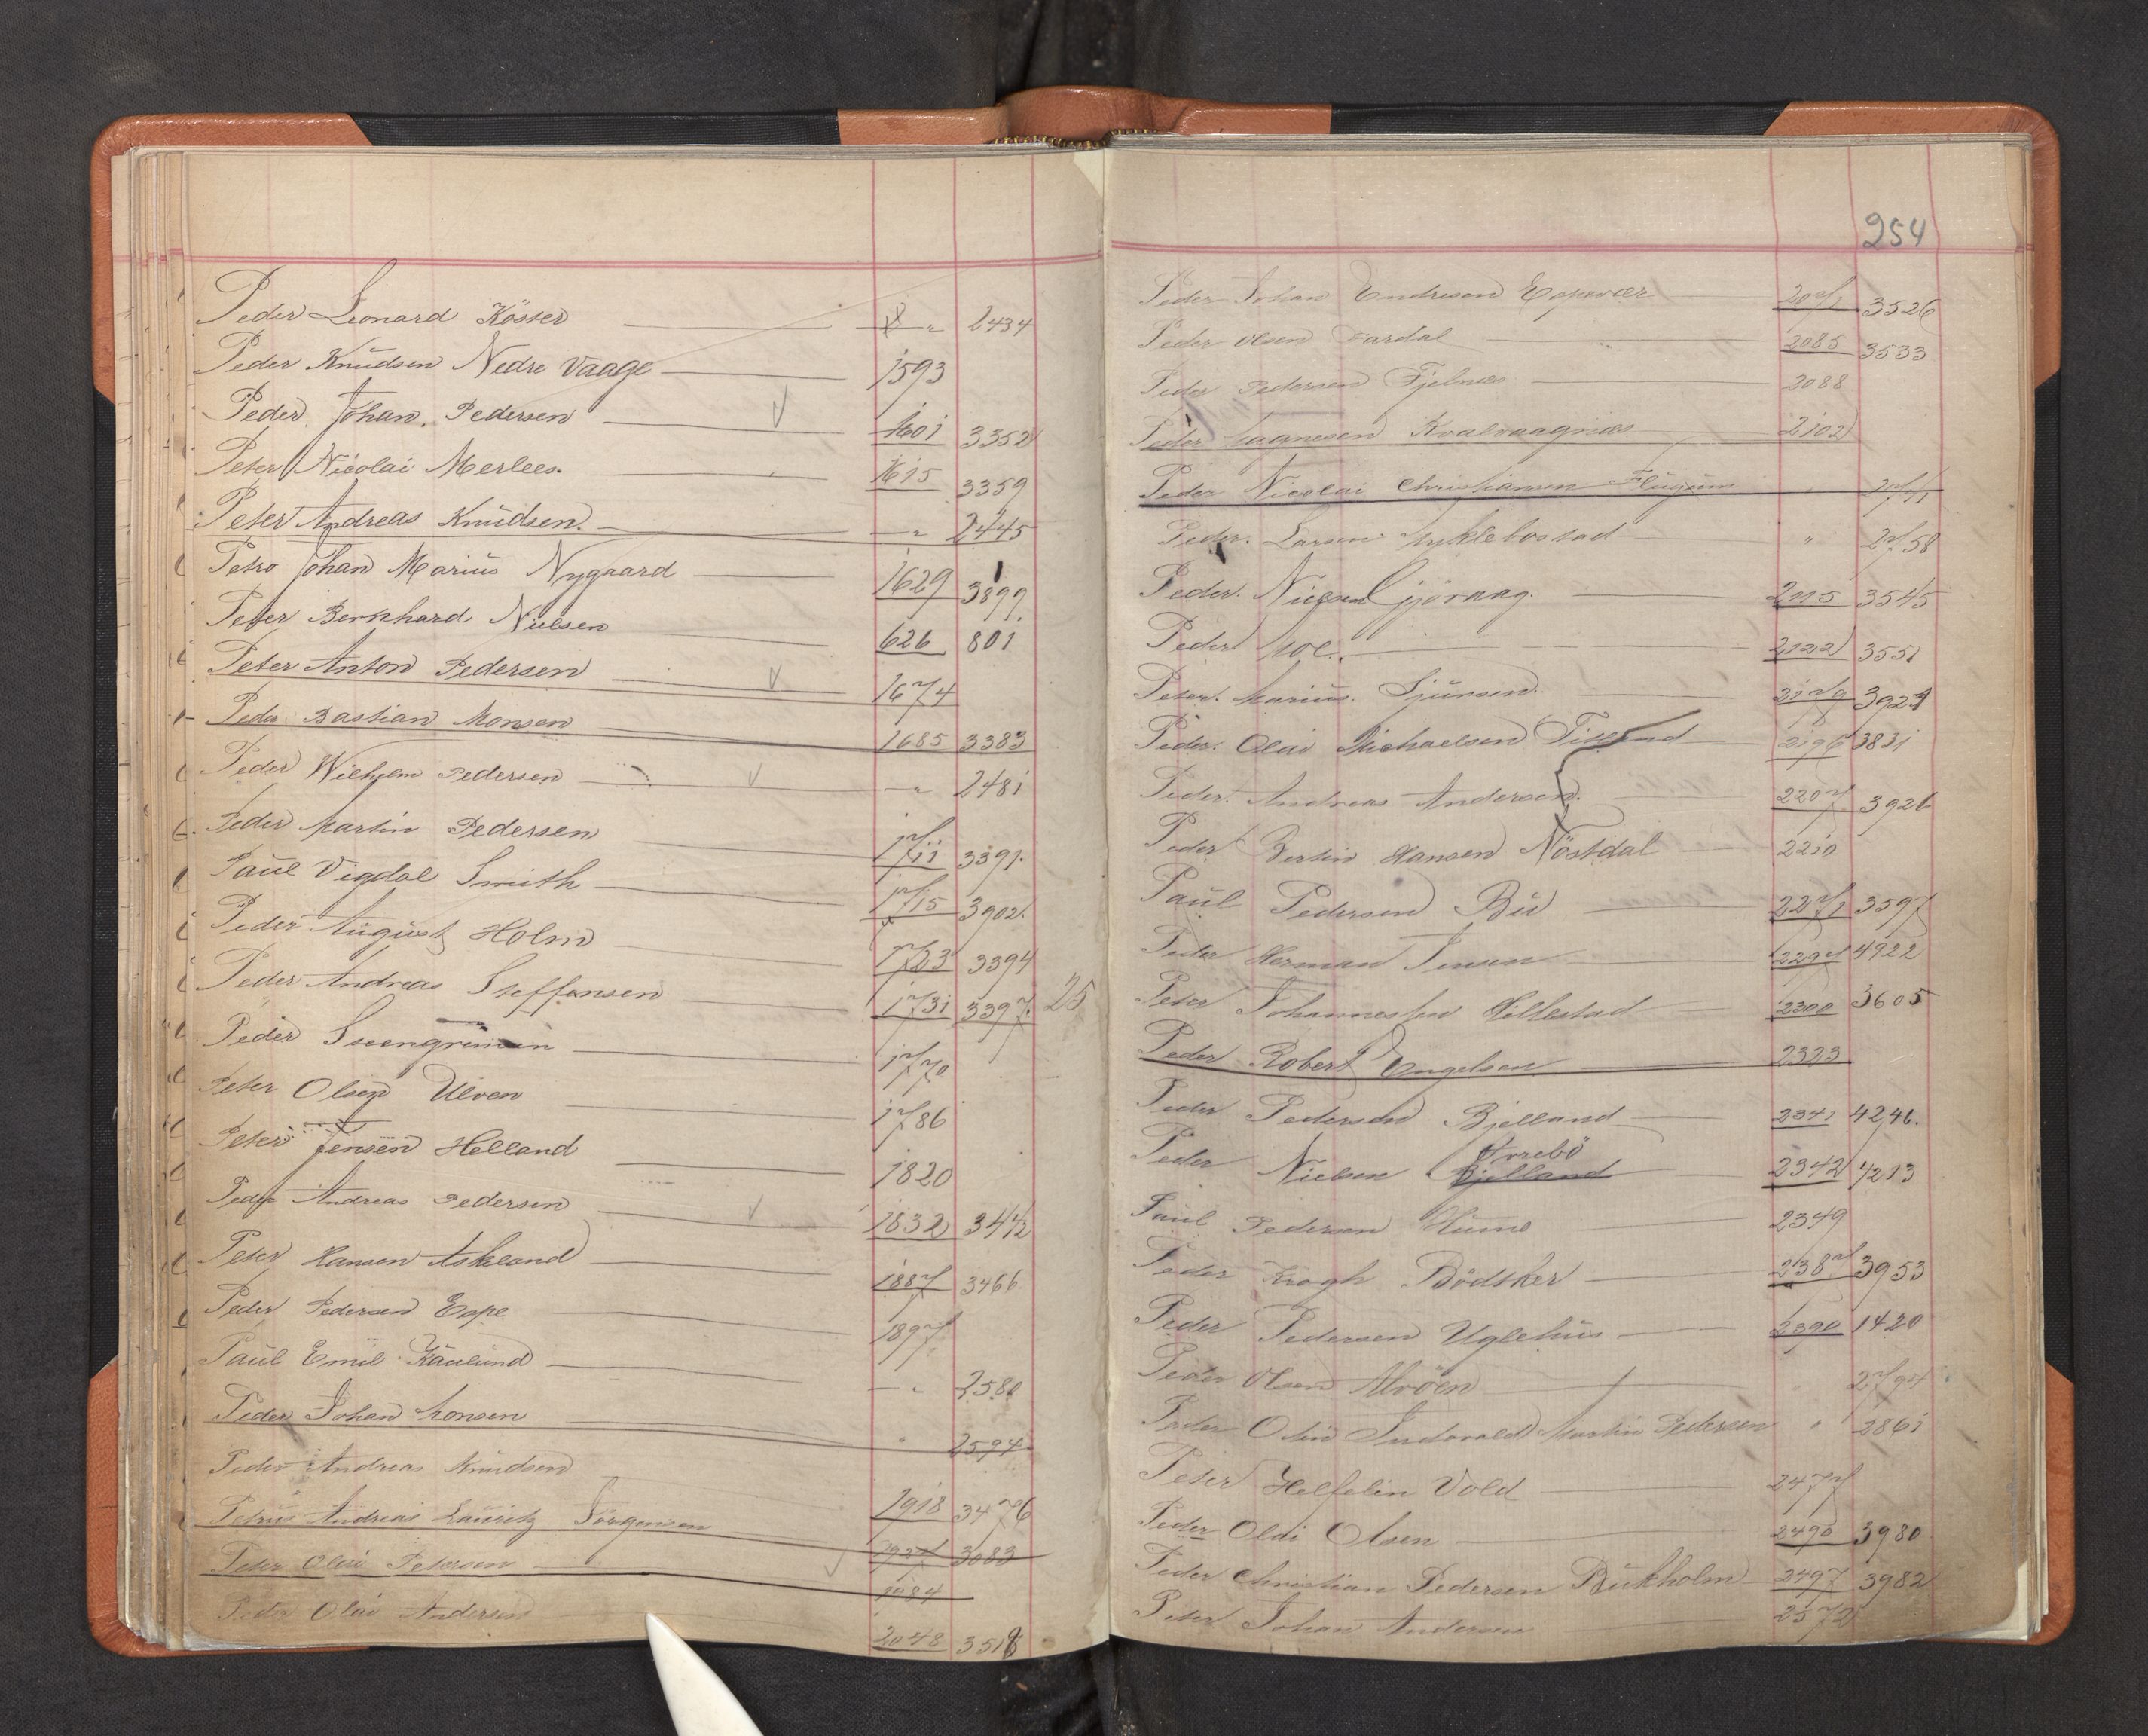 Peder Leonard Köster 2434
Peder Knudsen Nedre Vaage 1593
Peder Johan Pedersen 1601 3352
Peter Nicolai Merlees. 1615 3359
Peter Andreas Knudsen. " 2445
Petro Johan Marius Nygaard 1629 3899
Peter Bernhard Nielsen 626 801
Peter Anton Pedersen 1674
Peder Bastian Monsen 1685 3383
Peder Wilhelm Pedersen " 2481
Peder Martin Pedersen 1711 3391
Paul Vigdal Smith 1715 3902
Peder August Holm 1723 3394
Peder Andreas Steffensen 1731 3397 25
Peder Steengrimsen 1770
Peter Olsen Ulven 1786
Peter Jensen Helland 1820
Peder Andreas Pedersen 1832 3442
Peter Hansen Askeland 1887 3466
Peder Pedersen Espe 1897
Paul Emil " 2580
Peder Johan Monsen " 2594
Peder Andreas Knudsen 1918 3476
Petrus Andreas Lauritz Jörgensen 1927 3083
Peder Olai Petersen 1984
Peder Olai Andersen 2048 3518
254
Peder Johan Endresen Espevær 2071 3526
Peder Olsen Aardal 2085 3533
Peder Pedersen Fjelnæs 2088
Peder Magnesen Kvalvaagnæs 2102
Peder Nicolai Christiansen Flugum " 2741
Peder Larsen Myklebostad " 2758
Peder Nielsen Gjövaag. 2115 3545
Peder Moe. 2122 3551
Peter Marius Sjursen 2179 3921
Peder Olai Michaelsen 2196 3831
Peder Andreas Andersen. 2207 3926
Peder Bertin Hansen Nöstdal 2210
Paul Pedersen Bu 2271 3597
Peder Herman Jensen 2297 4922
Peter Johannessen Hillestad 2300 3605
Peder Robert Engelsen 2323
Peder Pedersen Bjelland 2341 4246.
Orrebö
Peder Nielsen Bjelland 2342 4213
Paul Pedersen 2349
Peder Krogh Bödtker 2387 3953
Peder Pedersen Uglehus 2390 1420
Peder Olsen Alvöen 2794
Peder Olai Martin Pedersen " 2861
Peter Helfelin Vold 2477
Peder Oldi Olsen 2490 3980
Peder Christian Pedersen Bukholm 2497 3982
Peter Johan Andersen 2572